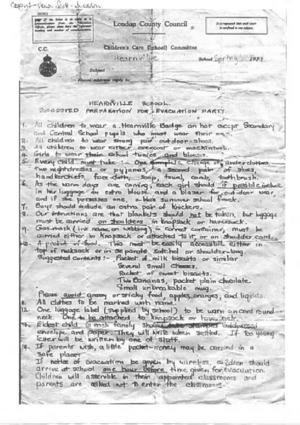 London County Council
C.C.
Children's Care (School) Committee
Hearnville School Spring 1939
HEARNVILLE SCHOOL
SUGGESTED PREPARATION FOR EVACUATION PARTY.
1. All children to wear a Hearnville Badge on hat except Secondary
and Central School pupils who must wear their own.
2. All children to wear strong pair outdoor shoes.
3. All children to wear either overcoat or mackintosh.
4. Girls to wear their school tunics and blouse.
5. Every child must take change of underclothes
Two nightdresses or pyjamas, a second pair of shoes
handkerchiefs, face cloth, soap, towel, comb, toothbrush.
6. As the warm days are coming each girl should if possible include
in her luggage an extra blouse and a blazer for outdoor wear
and if she possesses one, a thin summer school frock.
7. Boys should include an extra pair of knickers.
8. Our intentions are that blankets should not be taken, but luggage
must be carried on shoulders in knapsack or haversack.
9. Gas-mask (with name on webbing) in correct container, must be
carried either in knapsack or attached to it, or on shoulder
10. A packet of food must be easily accessible either in
top of knapsack or in separate satchel or shoulder-bag
Suggested contents:- Packet of milk biscuits or similar
Several small cheeses.
Packet of sweet biscuits.
Two bananas, packet plain chocolate.
Small unbreakable mug.
Please avoid greasy or sticky food, apples, oranges, and liquids.
11. All clothes to be marked with name.
12. One luggage label (supplied by school) to be worn on cord round
neck. One to be attached to
13. Eldest child in each family should take stamped addressed
envelope and paper. They will write when settled. If too young
letter will be written by one of staff.
14. If parents wish, a little pocket-money may be carried in a
safe place.
If notice of evacuation be given by wireless, children should
arrive at school one hour before time given for evacuation
Children will assemble in their appointed classrooms and
parents are asked not to enter the classrooms.